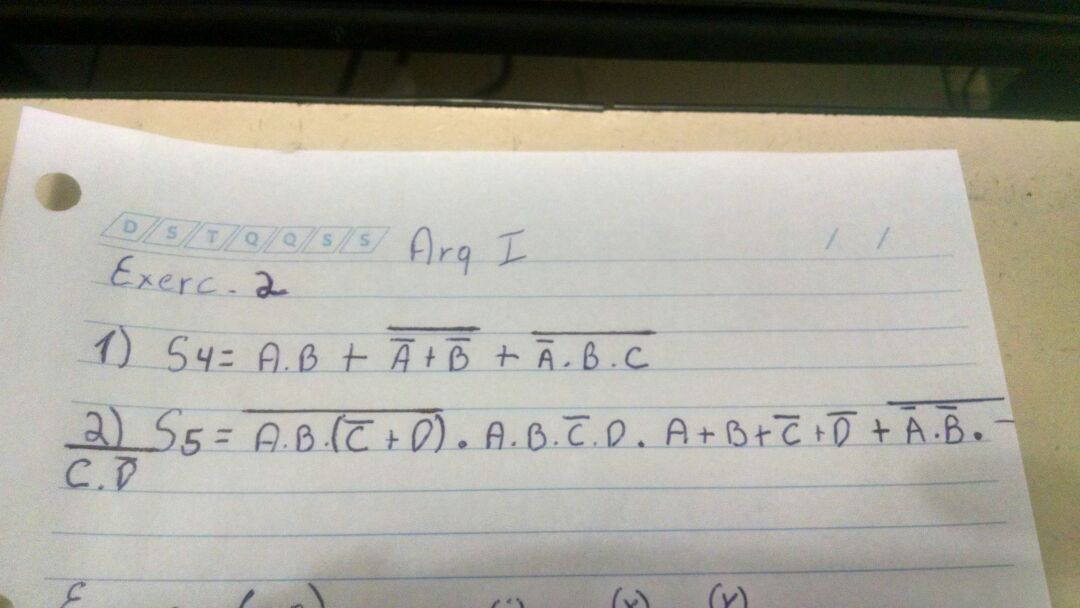 D S T Q Q S S Arq I / /
Exerc. 2
1) S4= A.B + \overline{\overline{A}+\overline{B}} + \overline{\overline{A}.B.C}
2) S5= \overline{A.B.(\overline{C}+D)}.A.B.\overline{C}.D.A+B+\overline{C}+\overline{D}+\overline{\overline{A}.\overline{B}.
C.\overline{D}}